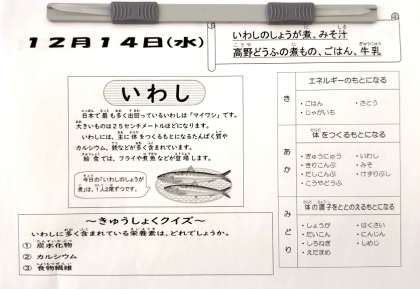 12月14日(水)
いわしのしょうが煮、みそ汁
高野どうふの煮もの、ごはん、牛乳
いわし
日本で最も多く出回っているいわしは「マイワシ」です。
大きいものは25センチメートルほどになります。
いわしには、主に体をつくるもとになるたんぱく質や
カルシウム、鉄などが多く含まれています。
給食では、フライや煮魚などが登場します。
今日の「いわしのしょうが
煮」は、1人2尾ずつです。
～きゅうしょくクイズ～
いわしに多く含まれている栄養素は、どれでしょうか。
① 炭水化物
② カルシウム
③ 食物繊維
き
エネルギーのもとになる
・ごはん ・さとう
・じゃがいも
あか
体をつくるもとになる
・ぎゅうにゅう ・いわし
・きりこんぶ ・みそ
・だしこんぶ ・けずりぶし
・こうやどうふ
みどり
体の調子をととのえるもとになる
・しょうが ・はくさい
・だいこん ・にんじん
・しろねぎ ・しめじ
・えだまめ